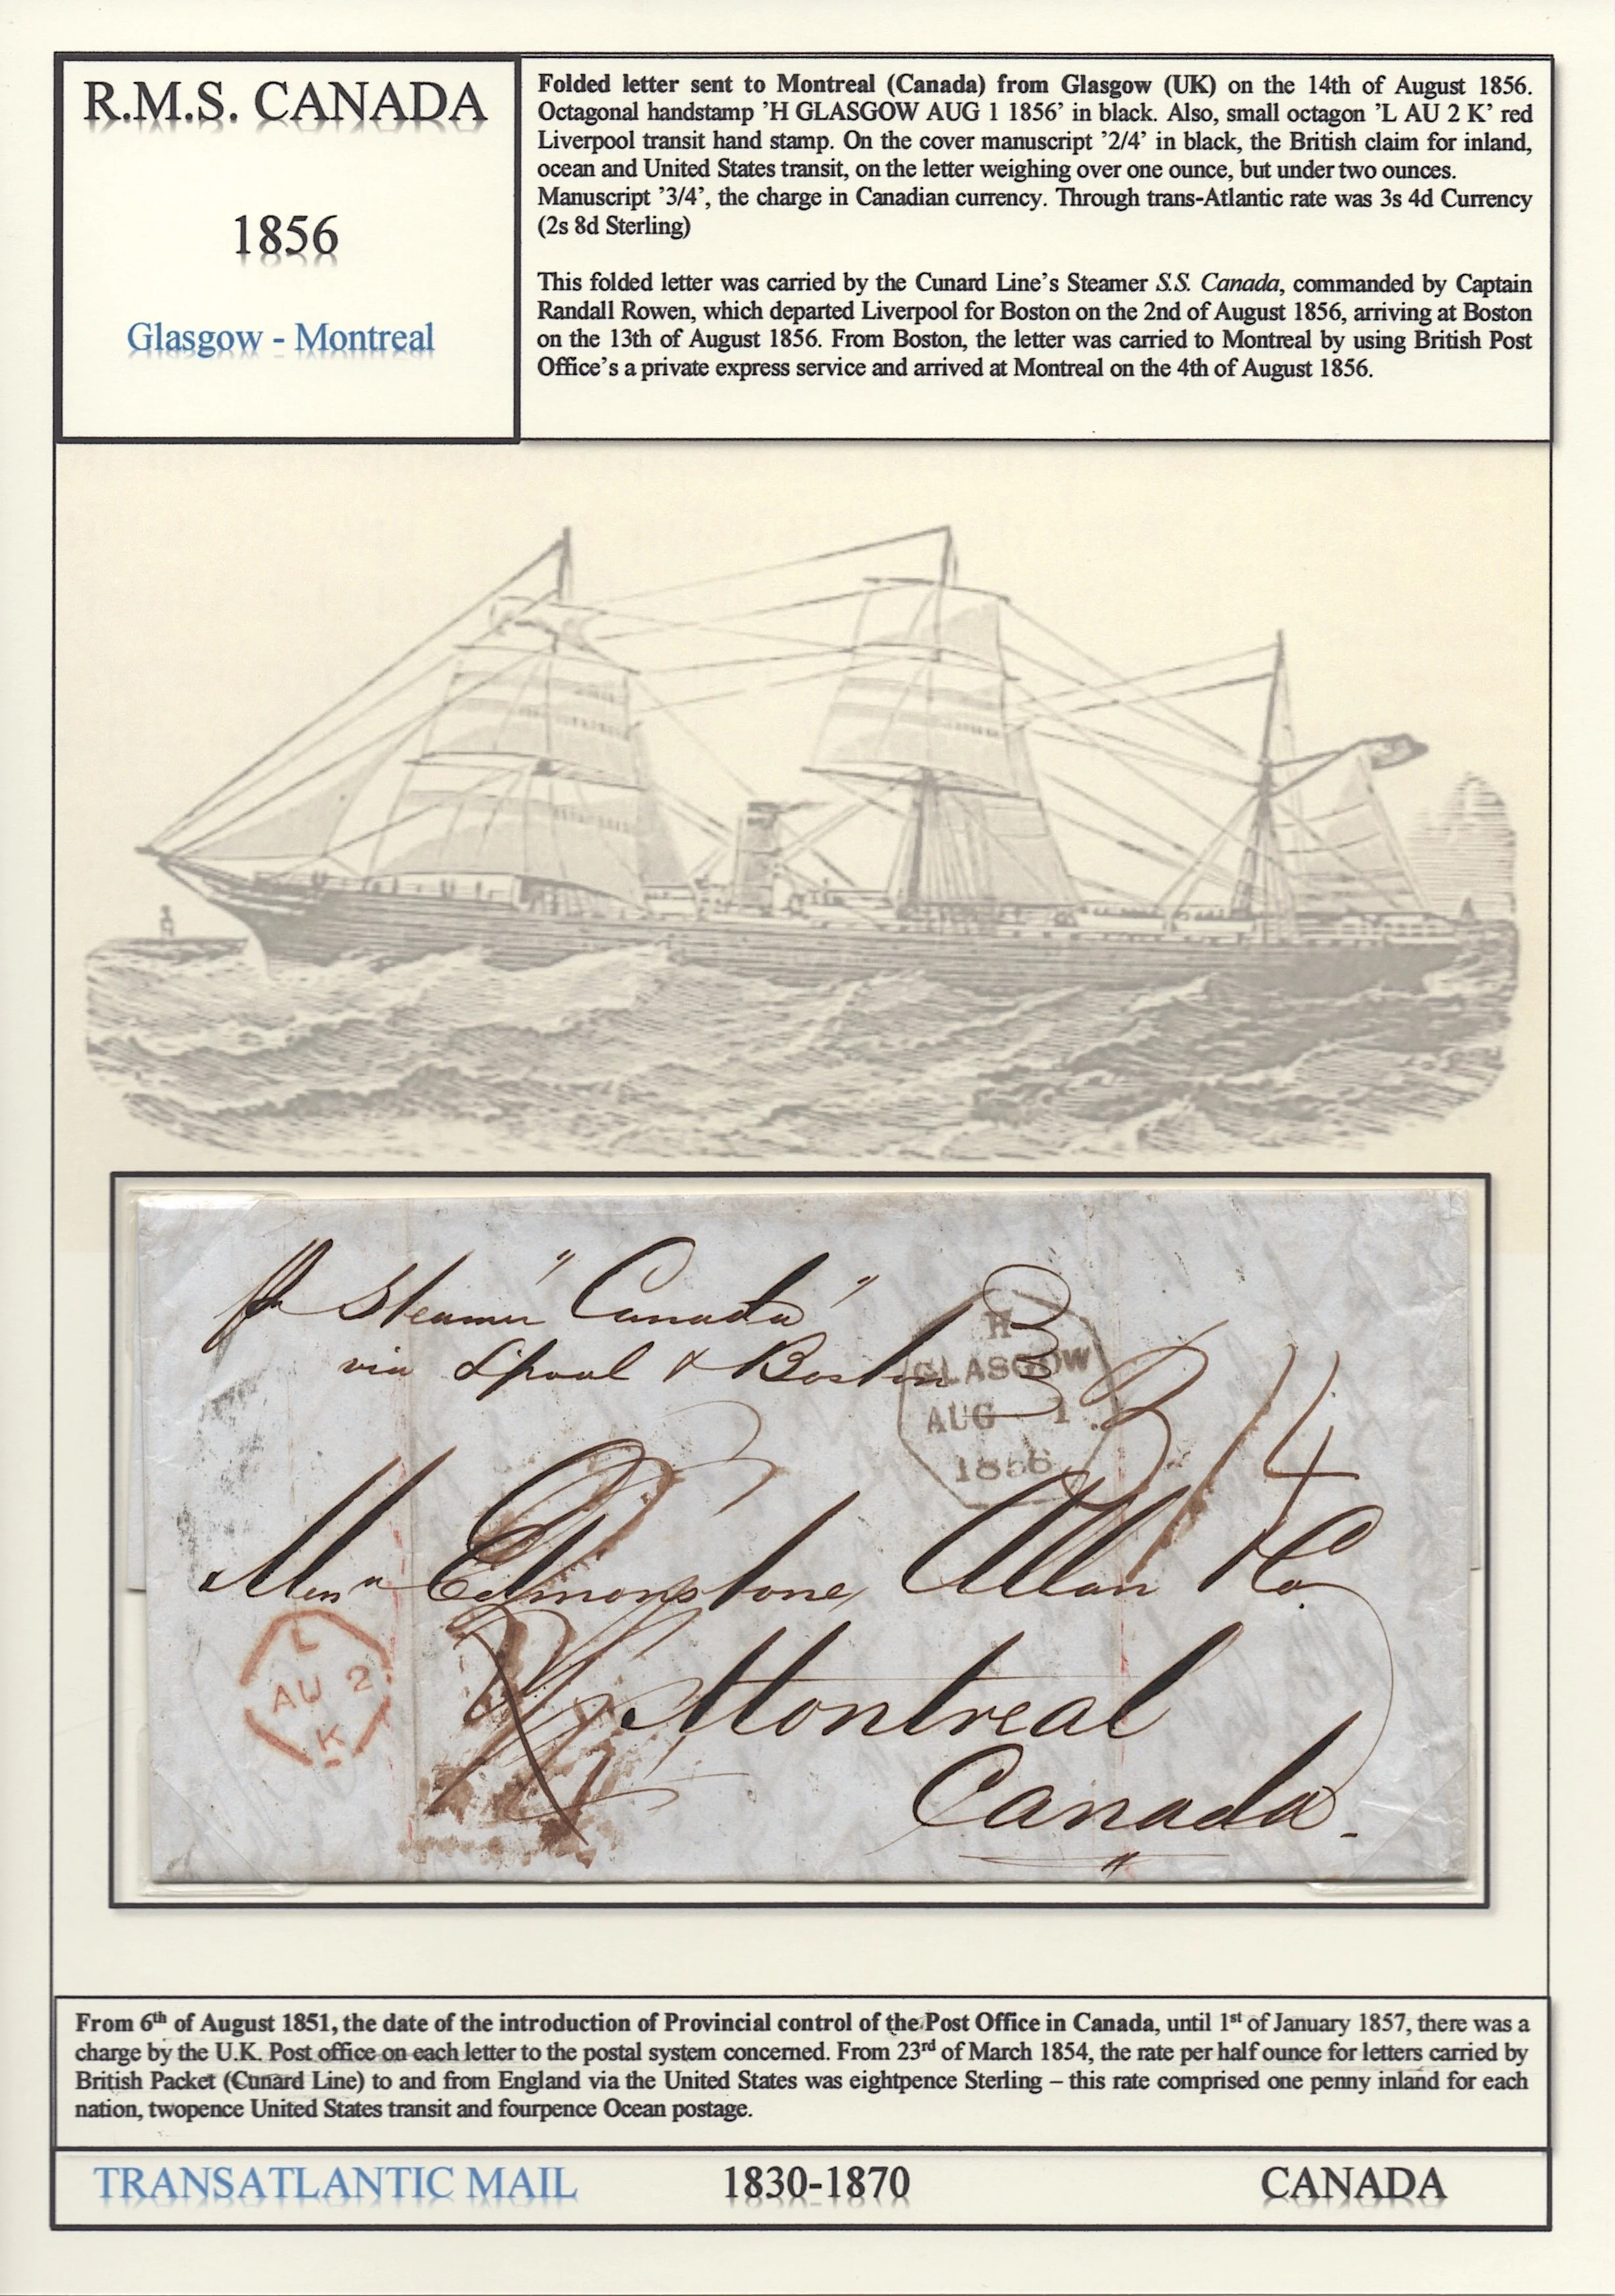 R.M.S. CANADA
1856
Glasgow - Montreal
Folded letter sent to Montreal (Canada) from Glasgow (UK) on the 14th of August 1856.
Octagonal handstamp ’H GLASGOW AUG 1 1856’ in black. Also, small octagon ’L AU 2 K’ red
Liverpool transit hand stamp. On the cover manuscript ’2/4’ in black, the British claim for inland,
ocean and United States transit, on the letter weighing over one ounce, but under two ounces.
Manuscript ’3/4’, the charge in Canadian currency. Through trans-Atlantic rate was 3s 4d Currency
(2s 8d Sterling)
This folded letter was carried by the Cunard Line’s Steamer S.S. Canada, commanded by Captain
Randall Rowen, which departed Liverpool for Boston on the 2nd of August 1856, arriving at Boston
on the 13th of August 1856. From Boston, the letter was carried to Montreal by using British Post
Office’s a private express service and arrived at Montreal on the 4th of August 1856.
Steamer "Canada"
via Lpool & Boston
3
H
GLASGOW
AUG 1
1856
3/4
Messrs Edmonstone, Allan & Co
L
AU 2
K
Montreal
Canada
From 6th of August 1851, the date of the introduction of Provincial control of the Post Office in Canada, until 1st of January 1857, there was a
charge by the U.K. Post office on each letter to the postal system concerned. From 23rd of March 1854, the rate per half ounce for letters carried by
British Packet (Cunard Line) to and from England via the United States was eightpence Sterling – this rate comprised one penny inland for each
nation, twopence United States transit and fourpence Ocean postage.
TRANSATLANTIC MAIL 1830-1870 CANADA